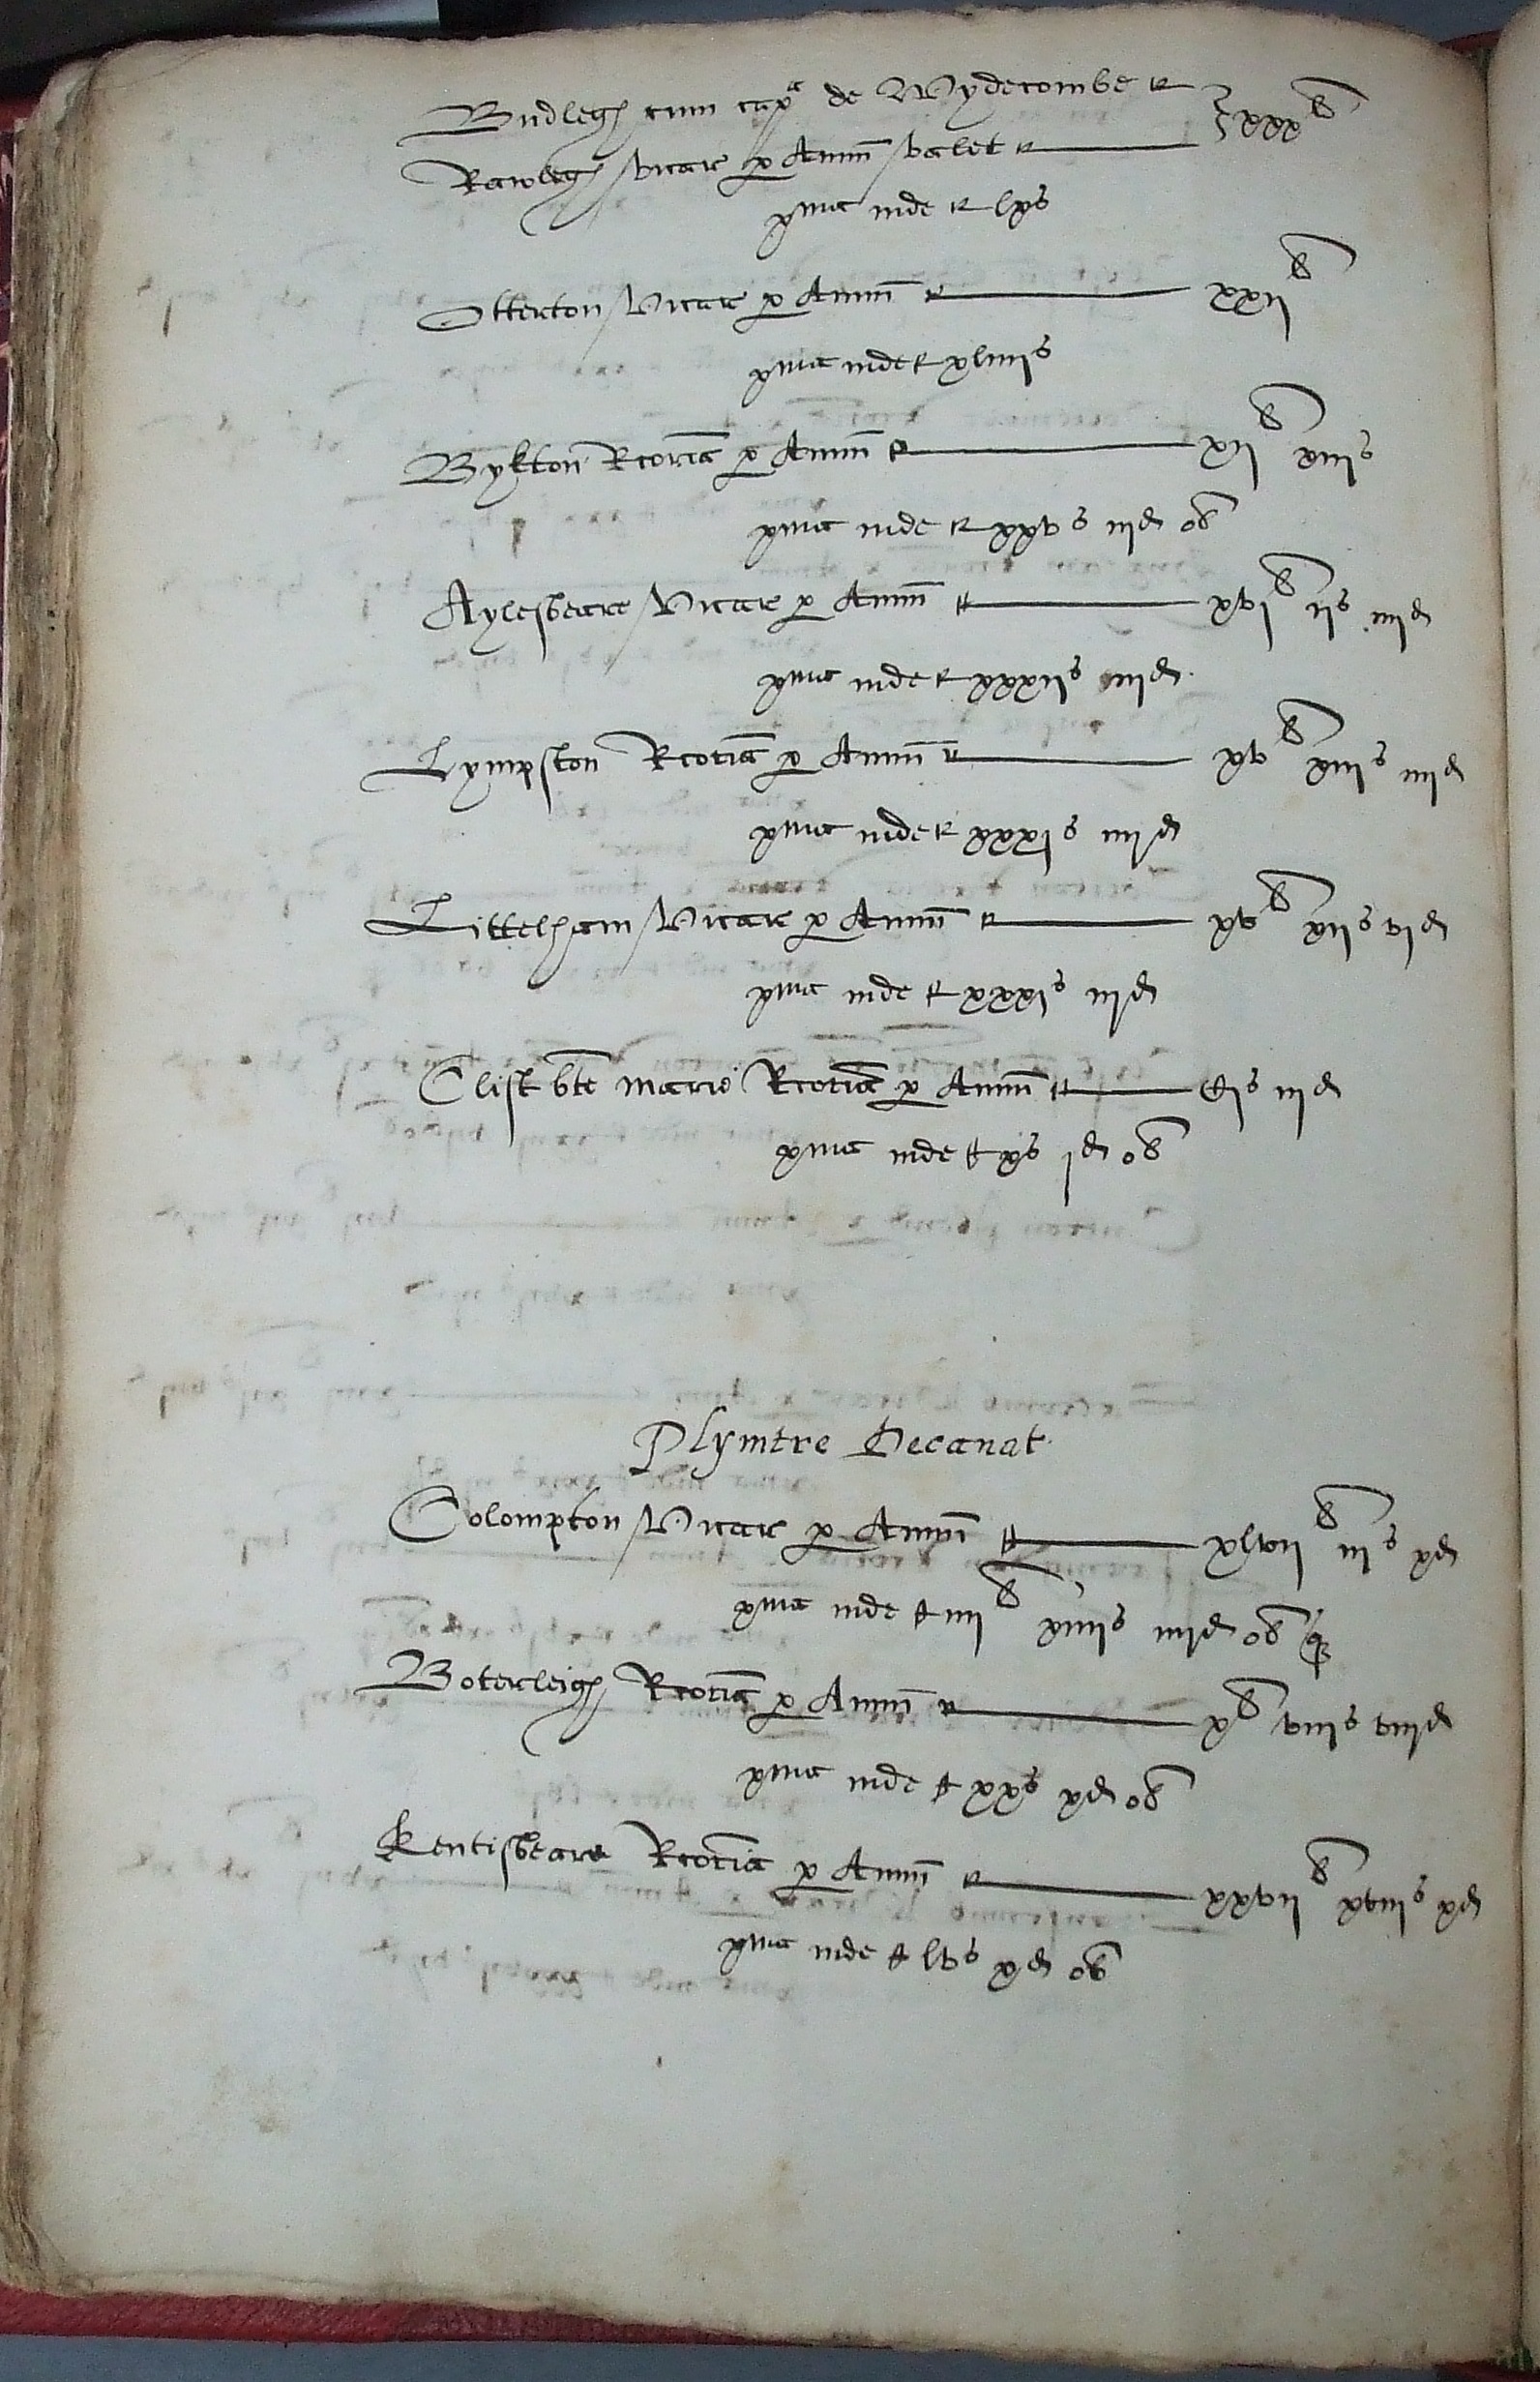 Budlegh cum cap^a de Wydecombe et
Rawlegh vicar p Annū valet xxx^li
x^ma inde lxs
Otterton Vicar p Annū xxij^li
x^ma inde xliiijs
Bykton Rcoria p Annū xij^li xiijs
x^ma inde xxvs iijd ob
Aylesbeare Vicar p Annū xvj^li ijs iiijd
x^ma inde xxxijs iijd
Lympston Rcoria p Annū xv^li xiijs iiijd
x^ma inde xxxjs iiijd
Littelham Vicar p Annū xv^li xijs vjd
x^ma inde xxxjs iijd
Clist bte marie Rcoria p Annū Cjs iijd
x^ma inde xs jd ob
Plymtre Decanat
Colompton Vicar p Annū xlvij^li iijs xd
x^ma inde iiij^li xiiijs iiijd ob q
Boterleigh Rcoria p Annū x^li viijs viijd
x^ma inde xxs xd ob
Kentisbeare Rcoria p Annū xxvij^li xviijs xd
x^ma inde lvs xd ob